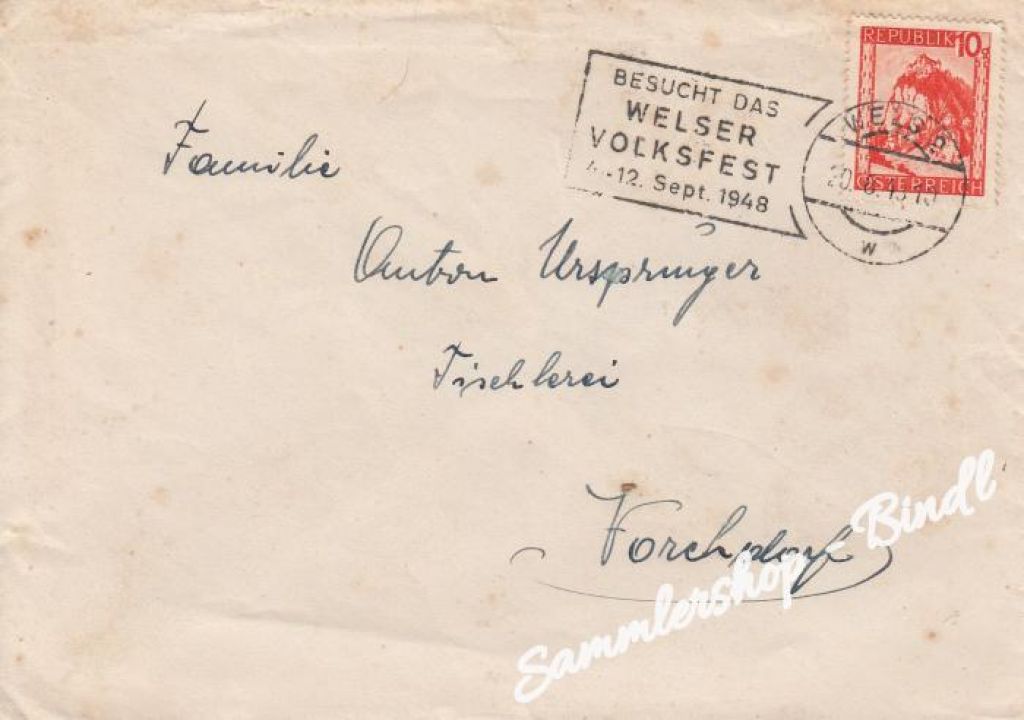 REPUBLIK 10g
ÖSTERREICH
BESUCHT DAS
WELSER
VOLKSFEST
4.-12. Sept. 1948
WELS
w
Familie
Anton Urspringer
Tischlerei
Vorchdorf
Sammlershop - Bindl